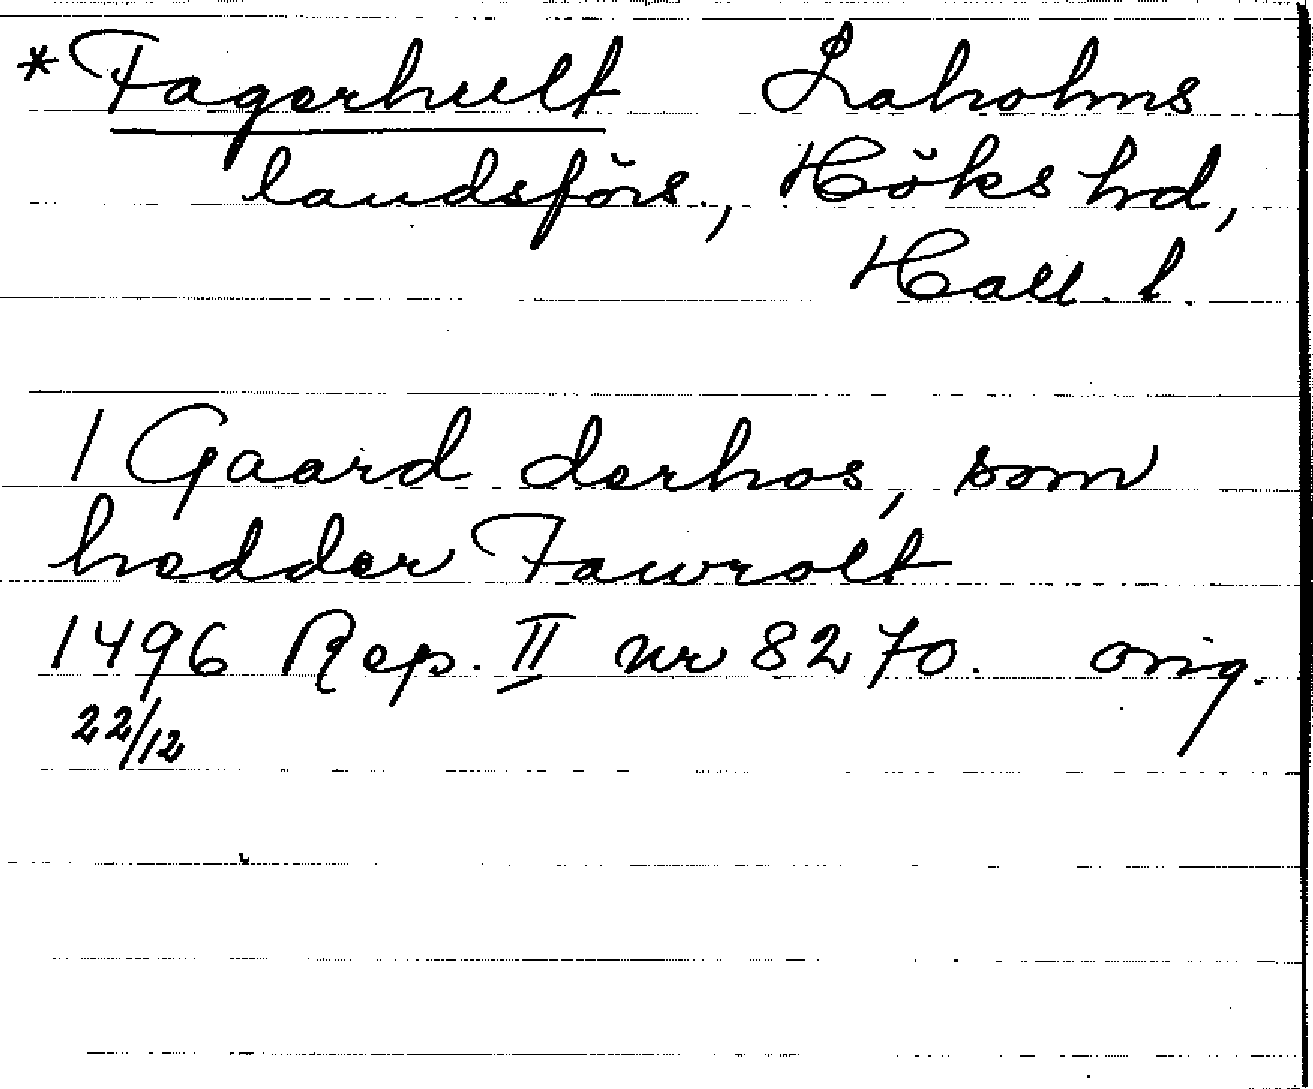 *Fagerhult Laholms
landsförs., Höks hd,
Hall. l.
1 Gaard derhos, som
hedder Fawrolt
1496 Rep. II nr 8270. orig.
22/12